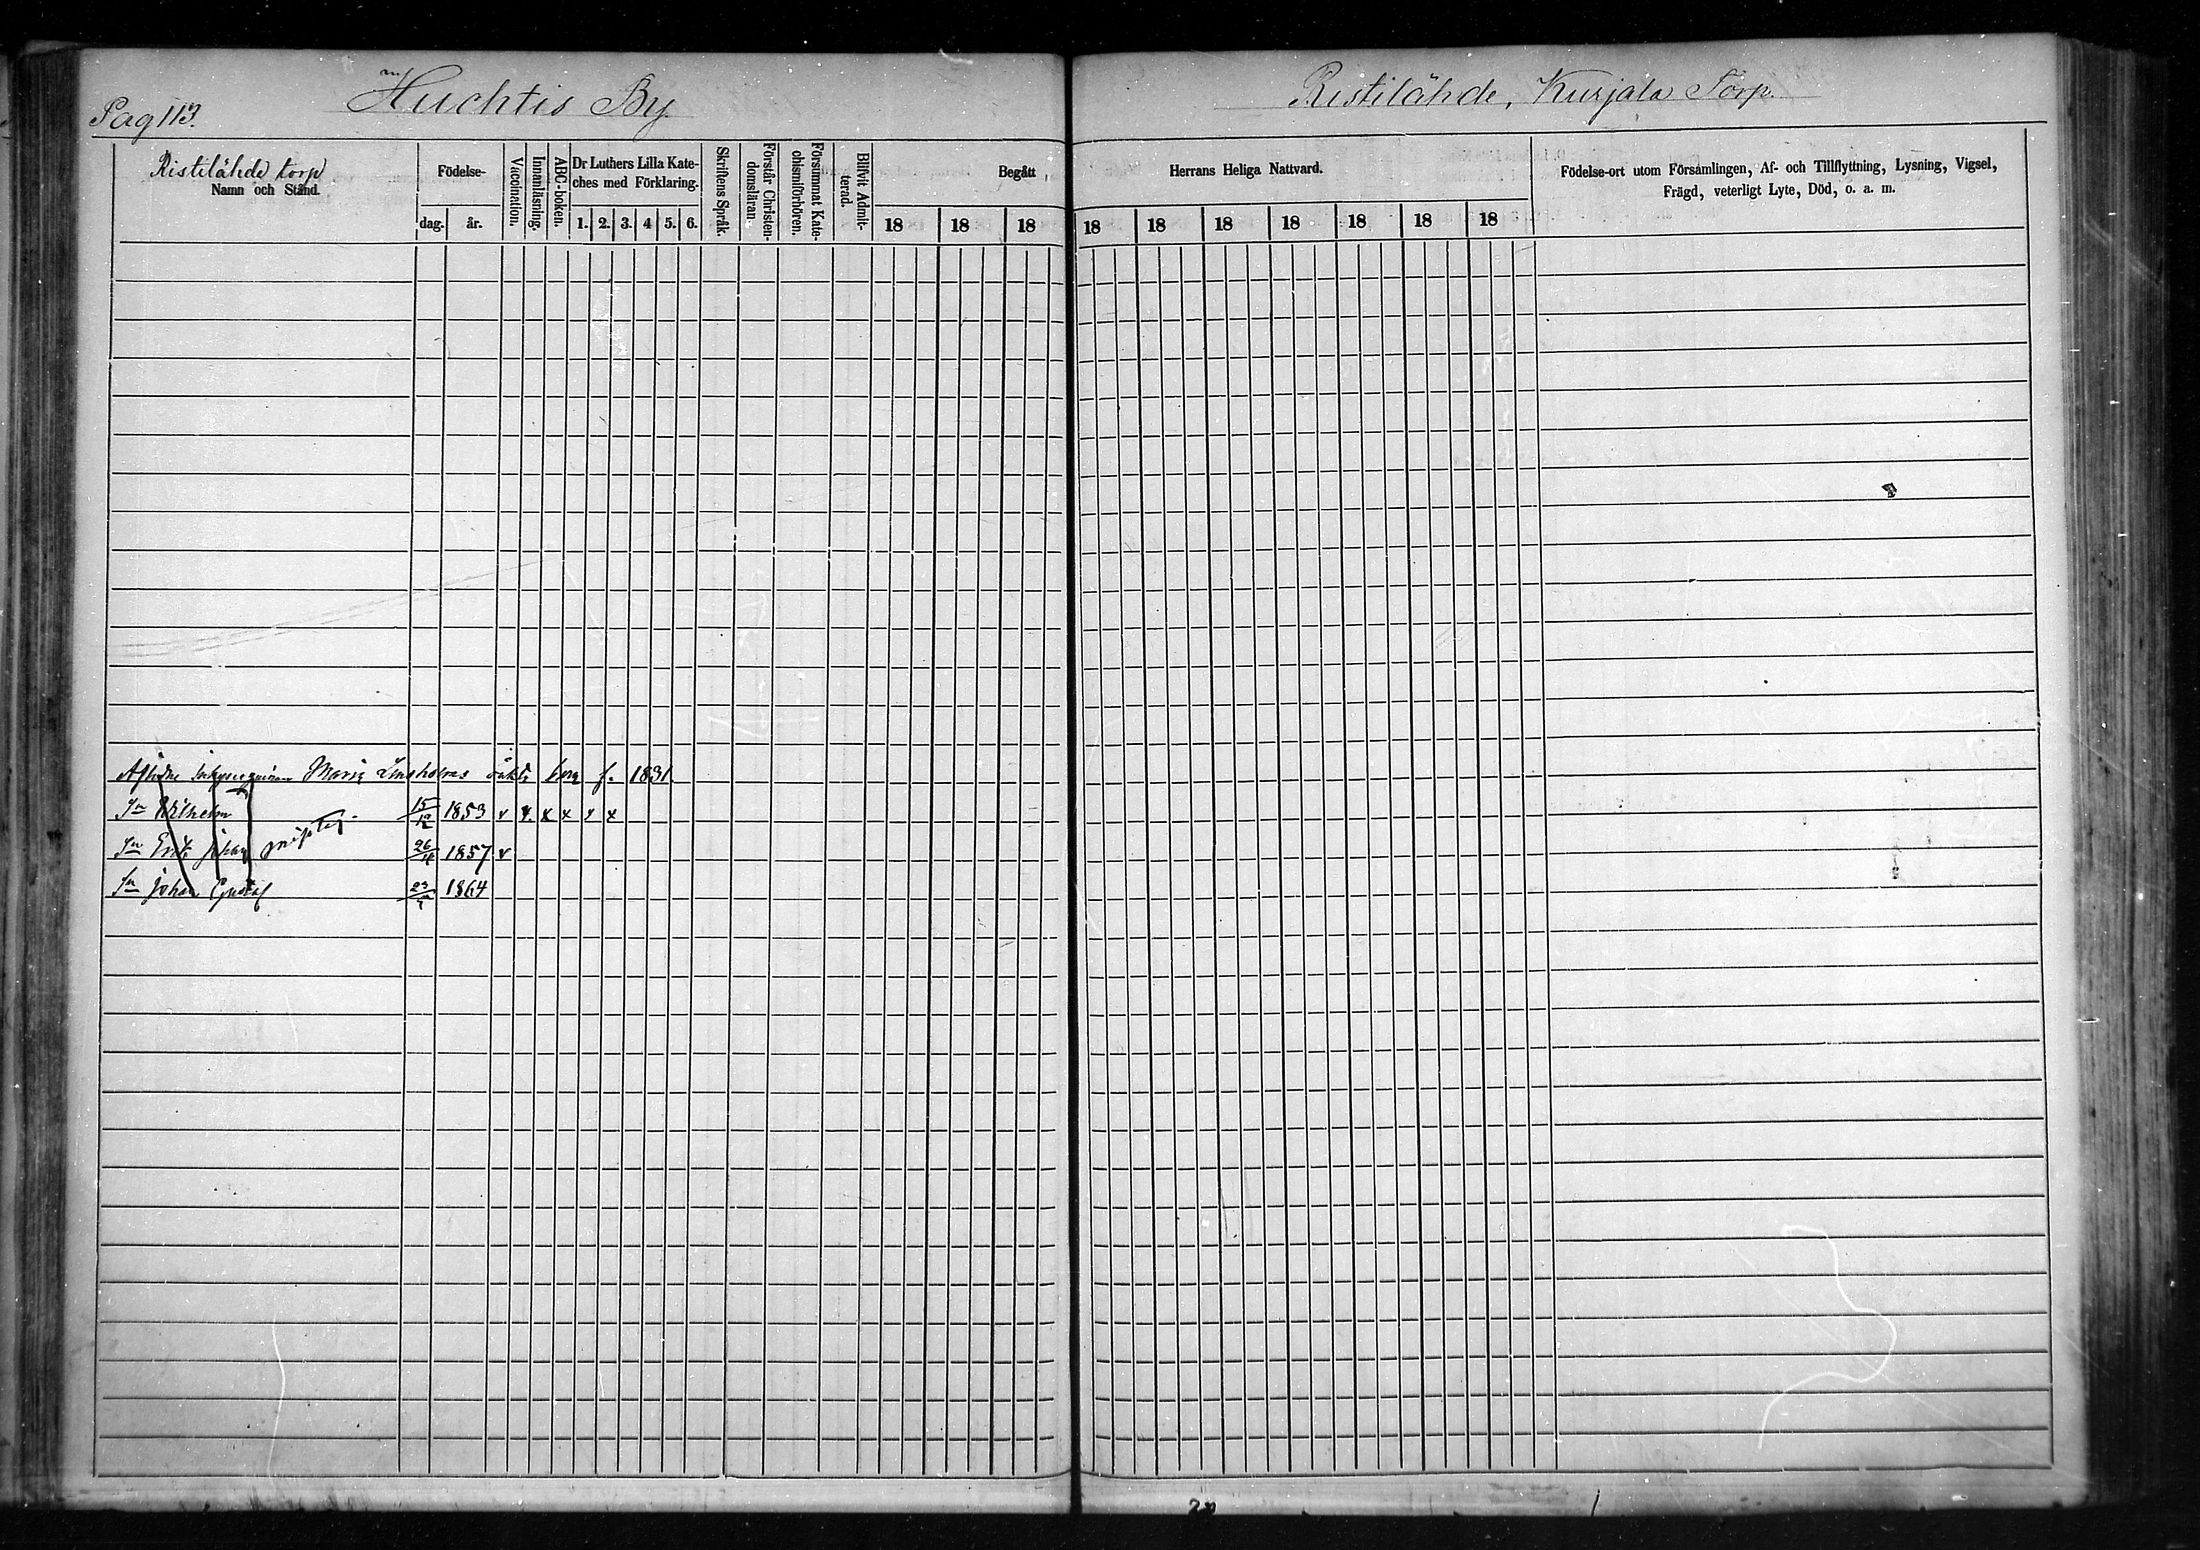 Pag 113.
Huchtis By.
Ristilähde, Kurjala Torp.
Ristilähde torp
Namn och Stånd.
Födelse-
dag. år.
Vaccination.
Innanläsning.
ABC-boken.
Dr Luthers Lilla Kate-
ches med Förklaring.
1. 2. 3. 4 5. 6.
Skriftens Språk.
Förstår Christen-
domsläran.
Försummat Kate-
chismiförhören.
Blifvit Admit-
terad.
Begått
18 18 18
Herrans Heliga Nattvard.
18 18 18 18 18 18 18
Födelse-ort utom Församlingen, Af- och Tillflyttning, Lysning, Vigsel,
Frägd, veterligt Lyte, Död, o. a. m.
Aflidne Maria barn f. 1831.
Sn Wilhelm 15/12 1853 v v. x x v x
Sn Erik Johan 26 1857 v
Sn Johan Gustaf 23 1864